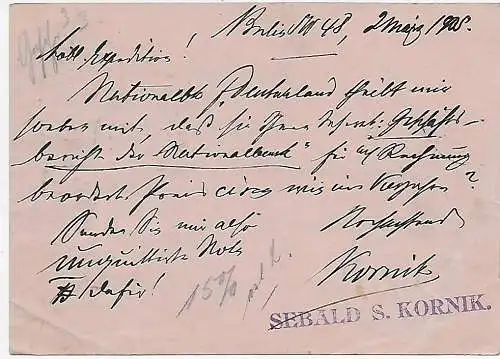 Berlin SW 48, 2 März 1905.
Löbl. Expedition!
Nationalbk f. Deutschland theilt mir
soeben mit, daß sie Ihnen Inserat: "Geschäfts-
bericht der Nationalbank" für Rechnung
beordert. Preis wie im Vorjahr?
Senden Sie mir also
unquittirte Nota
dafür!
Hochachtend
Kornik
15%
SEBALD S. KORNIK.